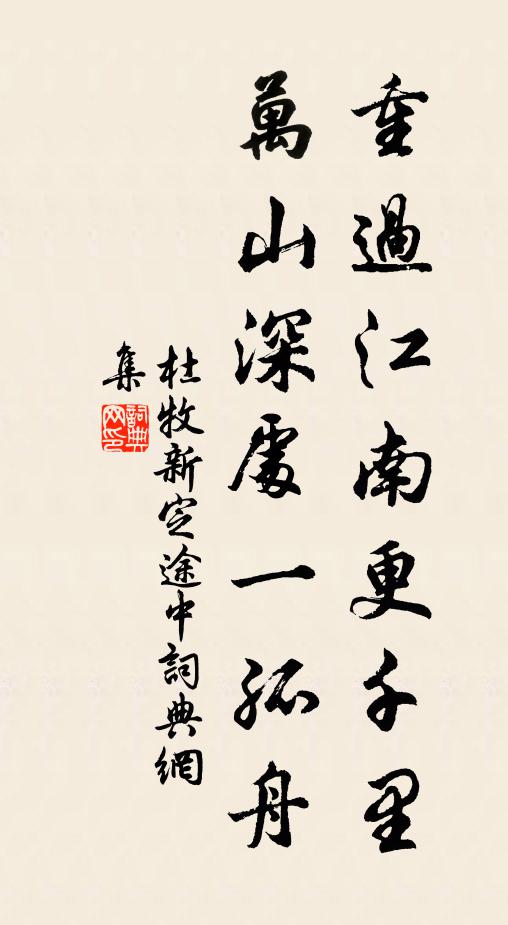 重過江南更千里
萬山深處一孤舟
杜牧新定途中詞典網
集
詞典网印